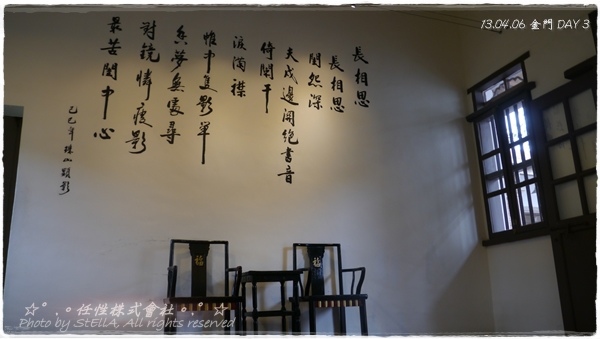 13.04.06 金門 DAY 3
長相思
長相思
閨怨深
夫戍邊關絕書音
倚闌干
淚濁襟
帷中隻影單
魚夢無處尋
對鏡憐瘦影
最苦閨中心
乙巳年 珠山顯影
☆°.。任性株式會社。.°☆
Photo by StEllA, All rights reserved